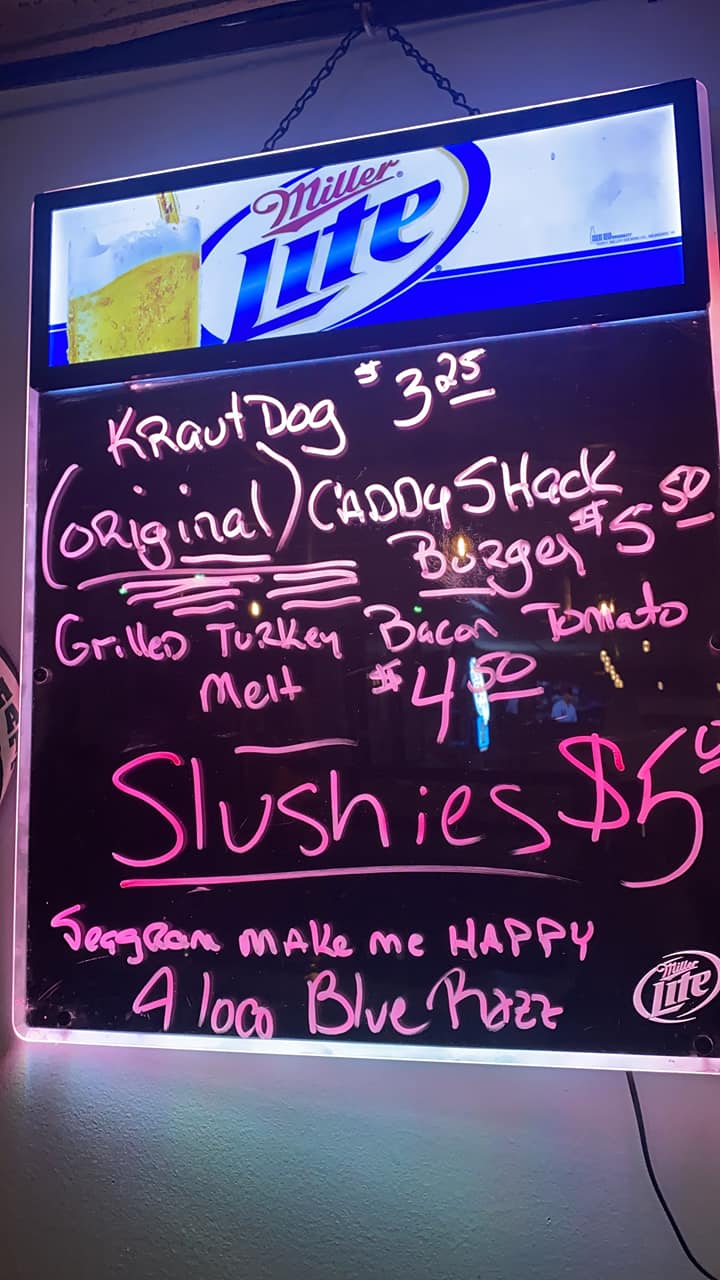 Miller
Lite
Kraut Dog $3.25
(original) CADDy SHack
Burger $5.50
Grilled Turkey Bacon Tomato
Melt $4.50
Slushies $5
Seagram MAKe me HAPPY
4 loco Blue Razz
Miller
Lite